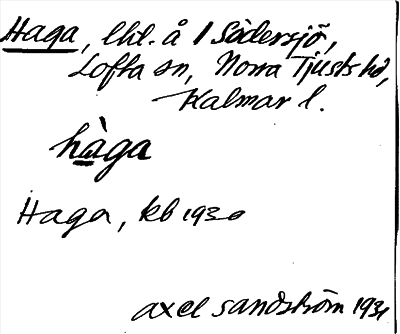 Haga, lht. å 1 Södersjö,
Lofta sn, Norra Tjusts hd,
Kalmar l.
hàga
Haga, kb 1930
axel sandström 1931